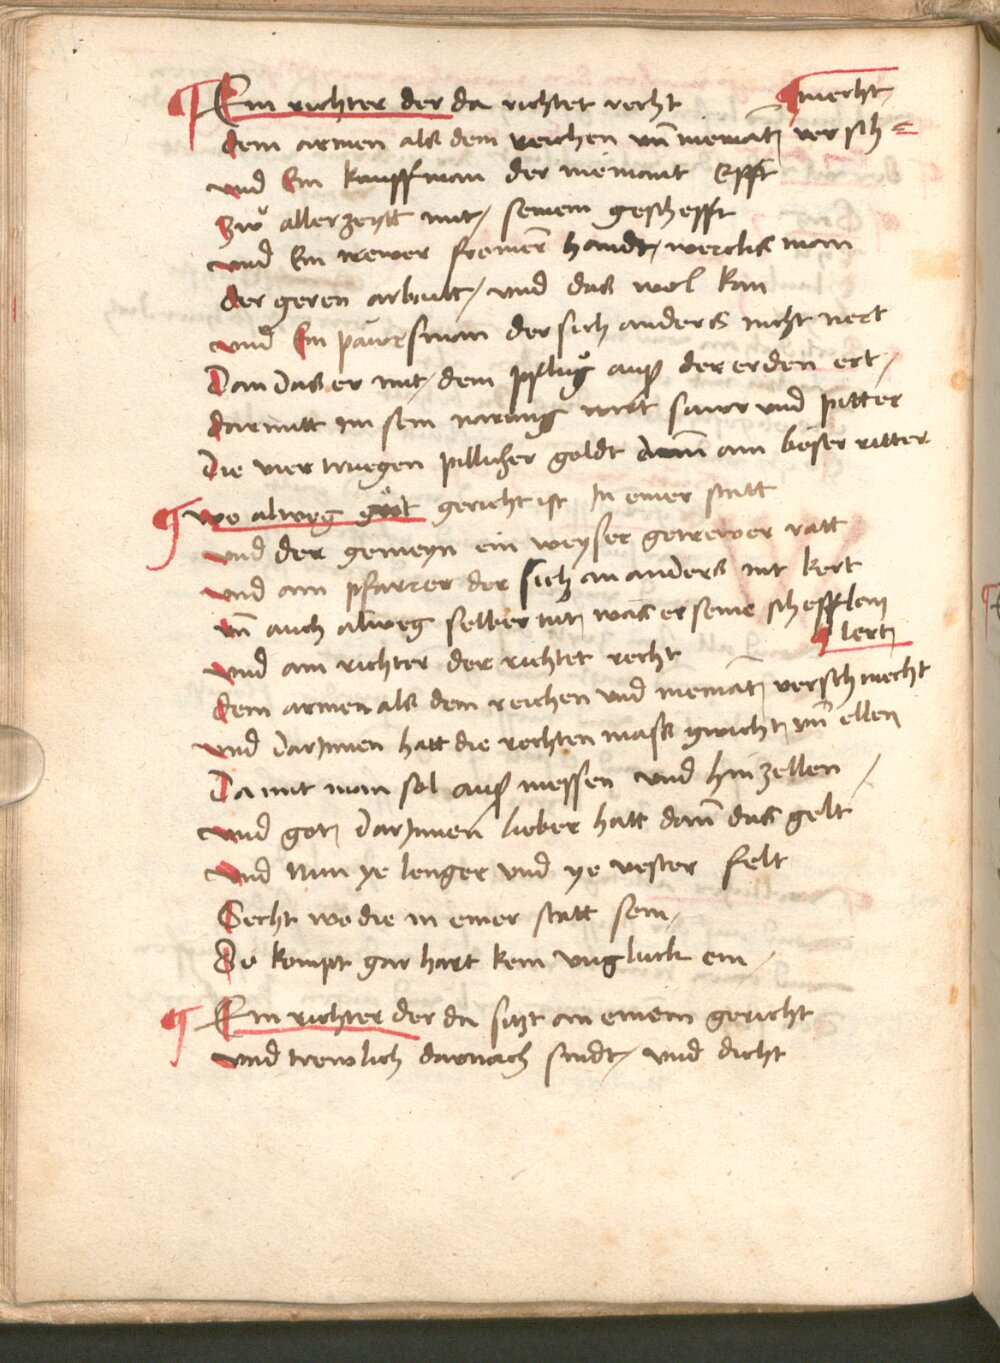 Ein richter der da richtet recht
dem armen als dem reichen vn̄ niemātz versch=
mecht
vnd Ein kauffman der niemant Efft
Zẘ aller zeytt mit seinem geschefft
vnd Ein trewer fromer handtwercks man
der geren arbaitt / vnd das wol kan
vnd Ein paẘrsman der sich anders nicht nert
Dan das er mit dem pflůg auß der erden ert /
darmitt im sein narung wirt sawr vnd pitter
Die vier truegen pillicher goldt dann ain böser ritter
Wo alweg gůt gericht ist In einer statt
vnd der gemeyn ein weyser getrewer ratt
vnd ain pfarrer der sich an anders nit kert
vn̄ auch alweg selber tůt was er seine schefflein
lert
vnd ain richter der richtet recht
dem armen als dem reichen vnd niemātz verschmecht
vnd darInnen hatt die rechten mass gwicht vn̄ ellen
Da mit man sol auß messen vnd hin zellen /
vnd got darInnen lieber hatt dan̄ das gelt
vnd Nun ye lenger vnd ye vester helt
Secht wo die in einer statt sein /
Do kompt gar hart kein vngluck ein /
Ein richter der da sitzt an einem gericht
vnd trewlich darnach sindt / vnd dicht